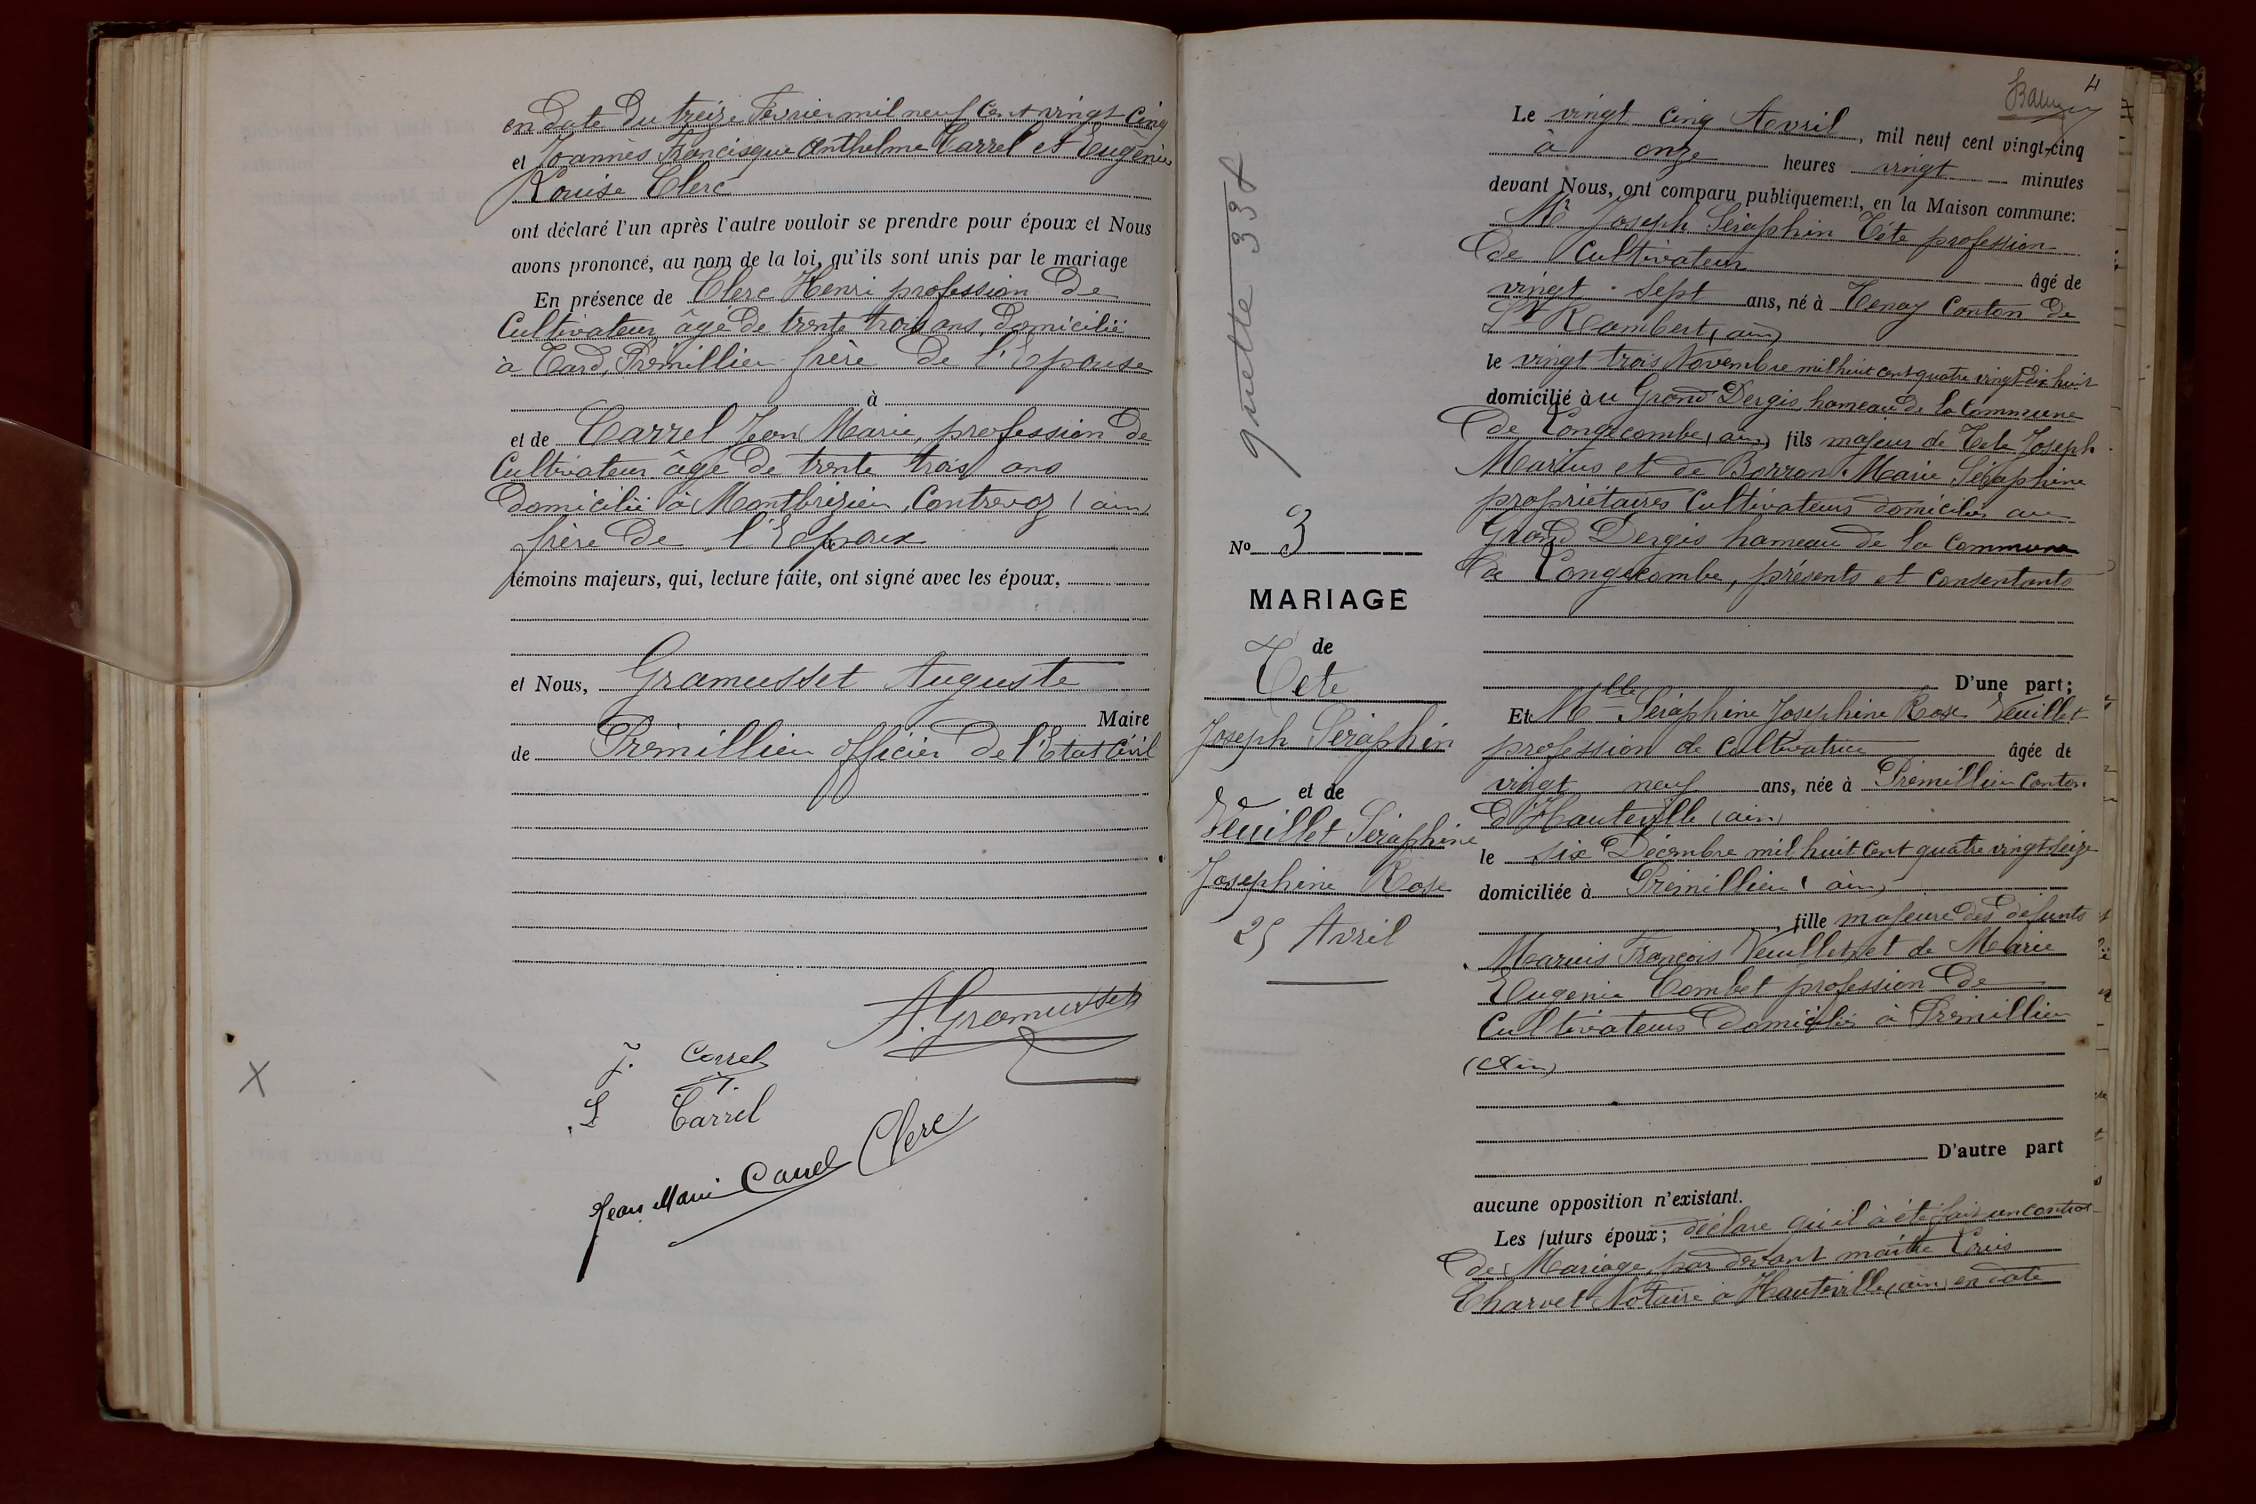 en date du treize Fevrier mil neuf cent vingt-cinq
et Joannès Francisque Anthelme Carrel et Eugénie
Louise Clerc
ont déclaré l'un après l'autre vouloir se prendre pour époux et Nous
avons prononcé, au nom de la loi, qu'ils sont unis par le mariage
En présence de Clerc Henri profession de
Cultivateur, âgé de trente trois ans, domicilié
à Tard, Prémillieu frère de l'Epouse
à
et de Carrel Jean Marie, profession de
Cultivateur âgé de trente trois ans
domicilié à Montbrézieu, Contrevoz (ain)
frère de l'Epoux
témoins majeurs, qui, lecture faite, ont signé avec les époux,
et Nous, Gramusset Auguste
Maire
de Prémillieu officier de l'Etat Civil
A. Gramusset
J. Carrel
L Carrel
Jean Marie Carrel Clerc
X
4
N° 3
MARIAGE
de
Tete
Joseph Séraphin
et de
Veuillet Séraphine
Josephine Rose
25 Avril
Le vingt cinq Avril, mil neuf cent vingt-cinq
à onze heures vingt minutes
devant Nous, ont comparu publiquement, en la Maison commune:
Mr Joseph Séraphin Téte profession
de Cultivateur âgé de
vingt-sept ans, né à Tenay Canton de
St Rambert (ain)
le vingt trois Novembre mil huit cent quatre vingt dix huit
domicilié à u Grand Dergis, hameau de la Commune
de Longecombe (ain) fils majeur de Tete Joseph
Marius et de Borron Marie Séraphine
propriétaires Cultivateurs domiciliés au
Grand Dergis hameau de la Commune
de Longecombe, présents et consentants
D'une part;
Et Mlle Séraphine Josephine Rose Veuillet
profession de Cultivatrice âgée de
vingt neuf ans, née à Prémillieu Canton
d'Hauteville (ain)
le six Décembre mil huit cent quatre vingt seize
domiciliée à Prémillieu (ain)
, fille majeure des defunts
Marius François Veuillet et de Marie
Eugenie Combet profession de
Cultivateurs domiciliés à Prémillieu
(Ain)
D'autre part
aucune opposition n'existant.
Les futurs époux; déclare qu'il à été fait un contrat
de Mariage par devant maitre Louis
Charvet Notaire à Hauteville (ain) en date